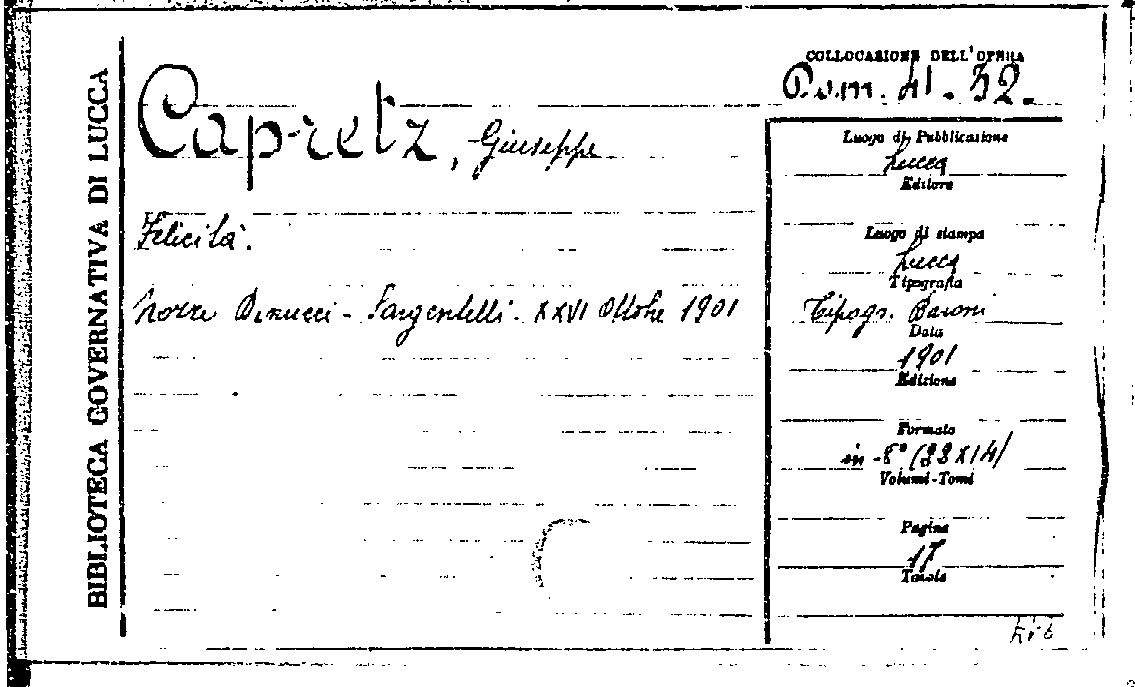 BIBLIOTECA GOVERNATIVA DI LUCCA
Capretz, Giuseppe
Felicità.
Nozze Benucci - Sargentelli. XXVI Ottobre 1901
COLLOCAZIONE DELL'OPERA
41.32.
Luogo di Pubblicazione
Lucca
Editore
Luogo di stampa
Lucca
Tipografia
Tipogr. Baroni
Data
1901
Edizione
Formato
in-8° (22x14)
Volumi-Tomi
Pagine
17
Tavole